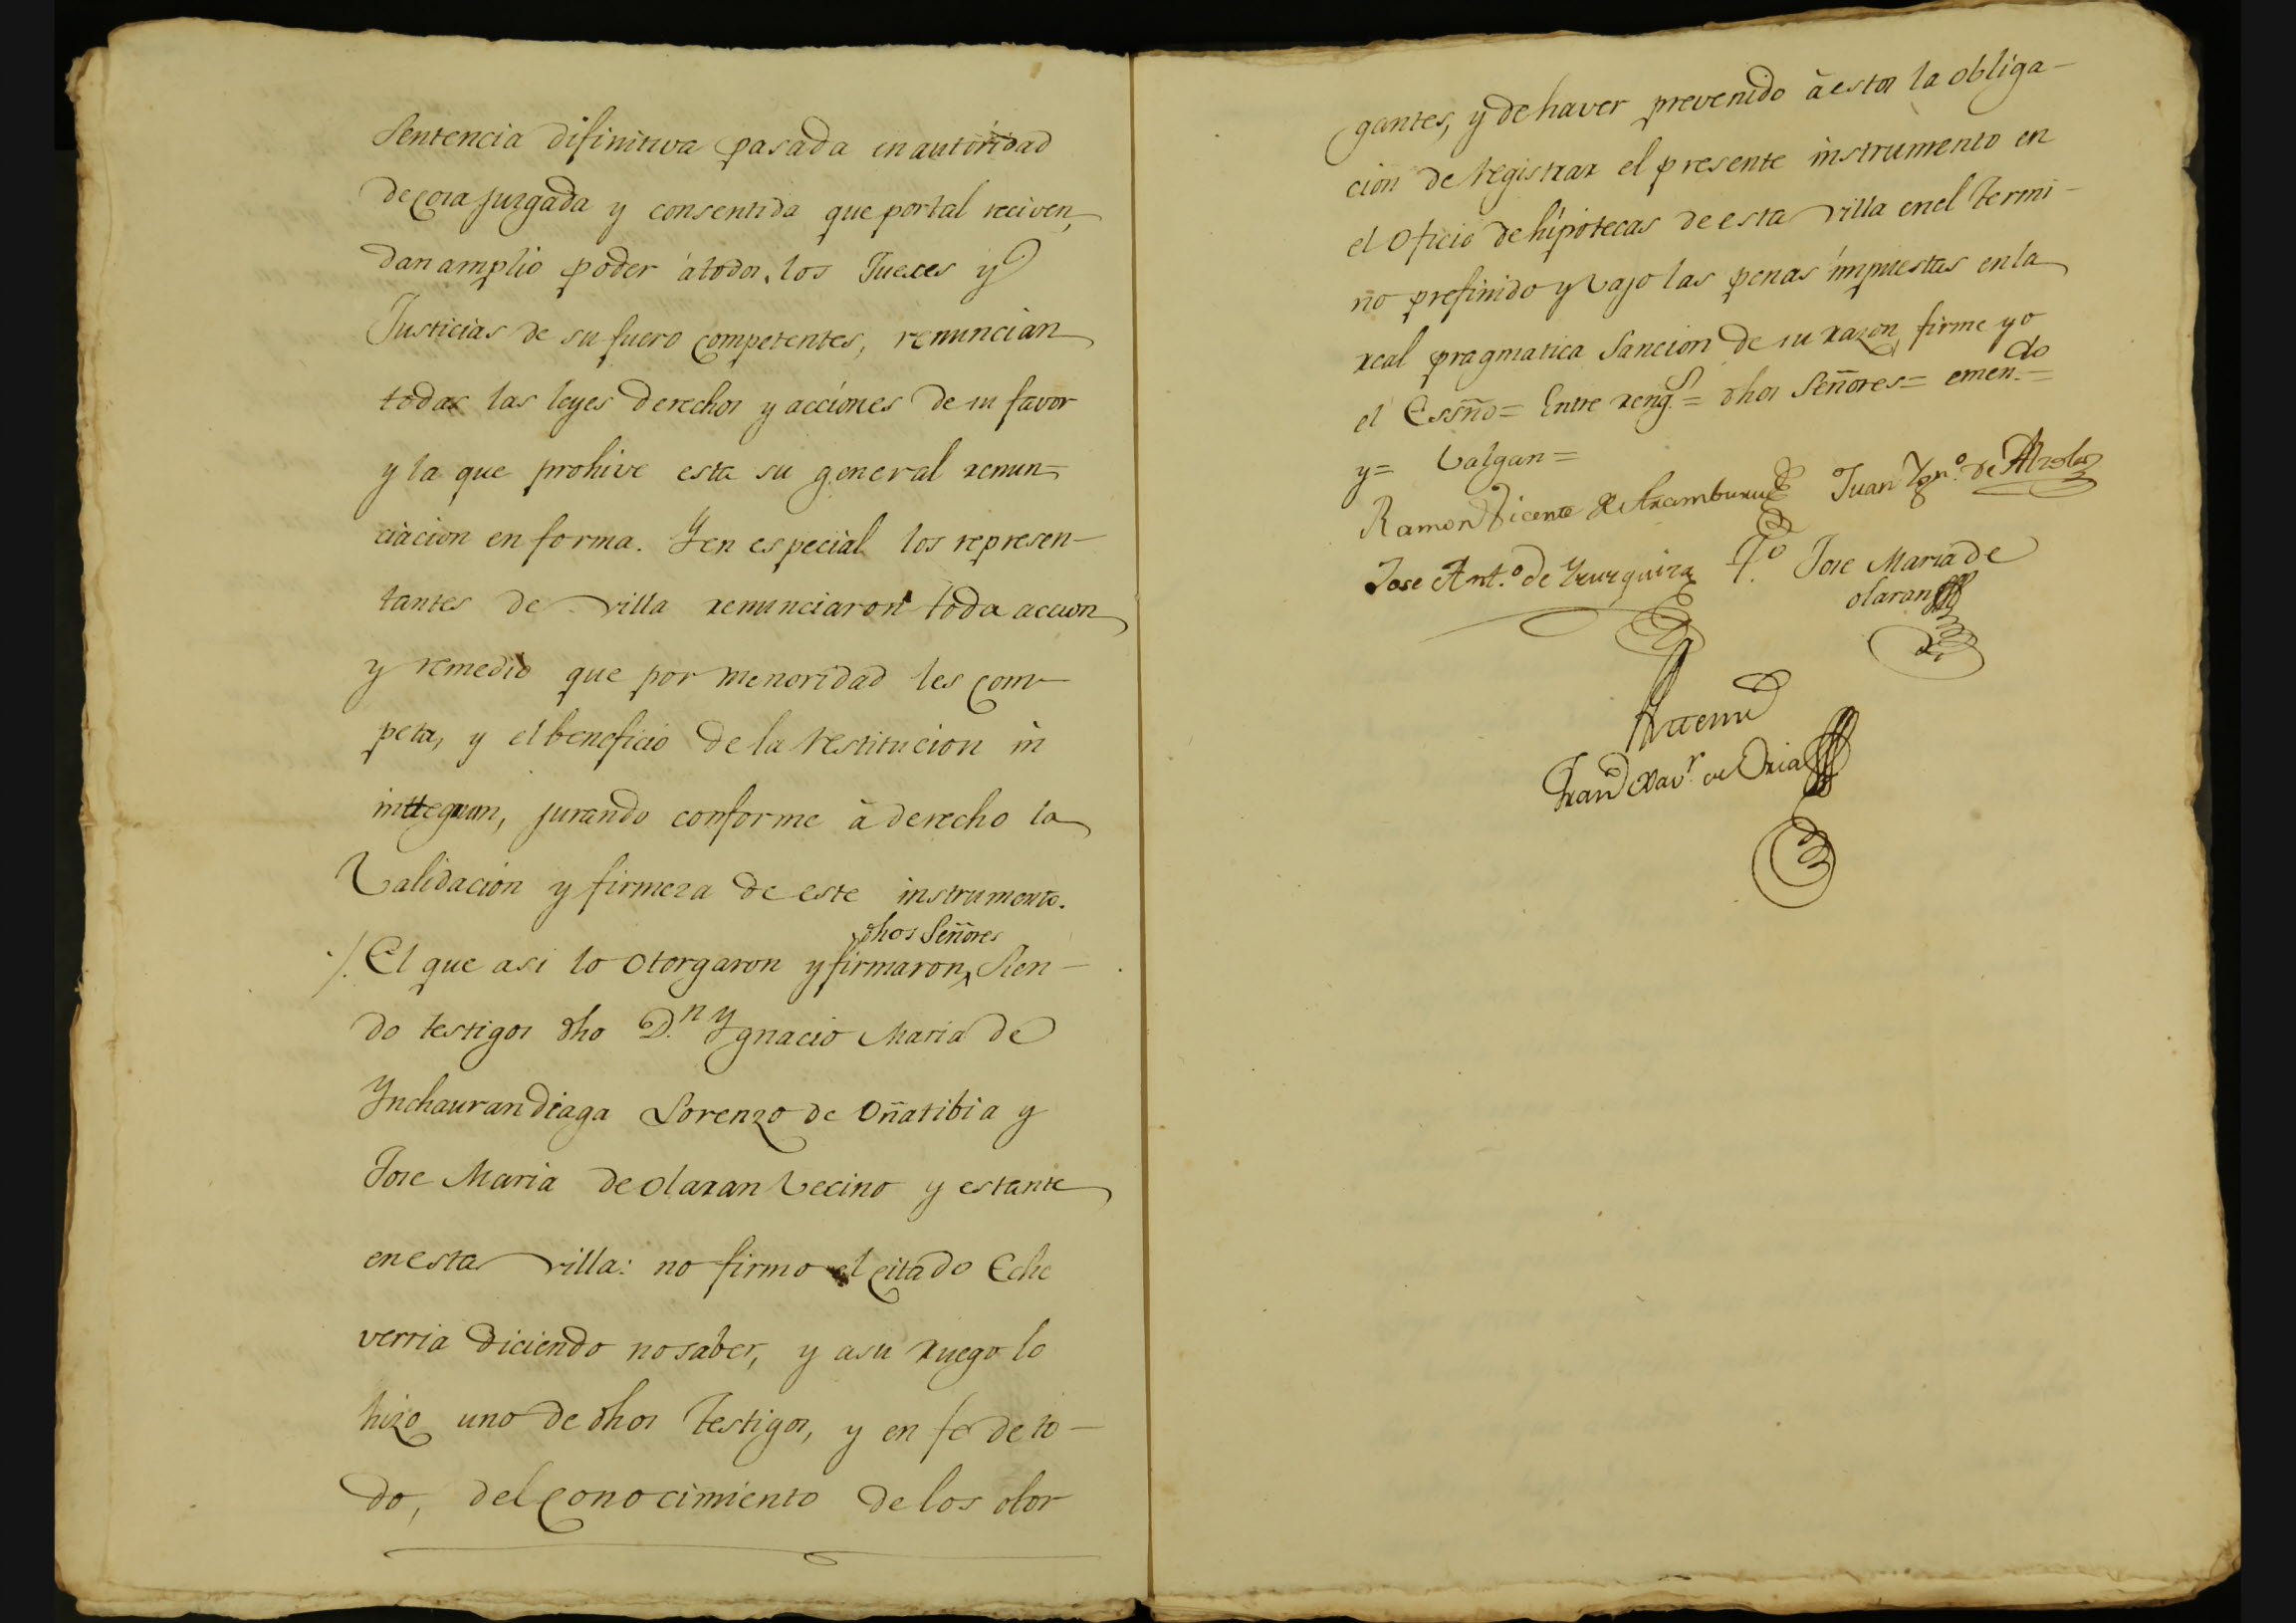 Sentencia difinitiva pasada en autoridad
de cosa juzgada y consentida que por tal reciven,
dan amplio poder à todos los Jueces y
Justicias de su fuero competentes, renuncian
todas las leyes derechos y acciones de su favor
y la que prohive esta su general renun-
ciacion en forma. Y en especial los represen-
tantes de villa renunciaron toda accion
y remedio que por menoridad les com-
peta, y el beneficio de la restitucion in
inttegrum, jurando conforme à derecho la
Validacion y firmeza de este instrumento.
dhos Señores
/. El que asi lo otorgaron y firmaron, Sien-
do testigos dho D.n Ygnacio Maria de
Ynchaurandiaga Lorenzo de Oñatibia y
Jose Maria de Olaran Vecino y estante
en esta villa: no firmo el citado Eche
verria diciendo no saber, y a su ruego lo
hizo uno de dhos testigos, y en fe de to-
do, del conocimiento de los otor
gantes, y de haver prevenido à estos la obliga-
cion de registrar el presente instrumento en
el Oficio de hipotecas de esta villa en el termi-
no prefinido y vajo las penas impuestas en la
real pragmatica Sancion de su razon, firme yo
el Essño= Entre reng.s= dhos Señores= emen.do=
y= Valgan=
Ramon Vicente de Aramburu Juan Ygn.o de Alzola
Jose Ant.o de Yrurquiza T.o Jose Maria de
olaran
Antemi
Fran.co Xav.r de Oria